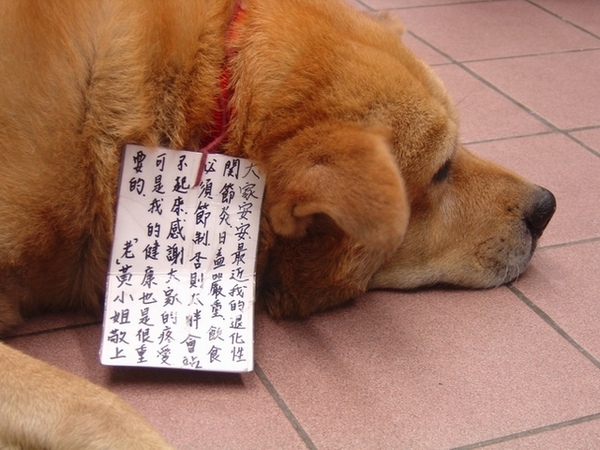 大家安安最近我的退化性
關節炎日益嚴重飲食
必須節制否則太胖會站
不起來感謝大家的疼愛
可是我的健康也是很重
要的
老黃小姐敬上